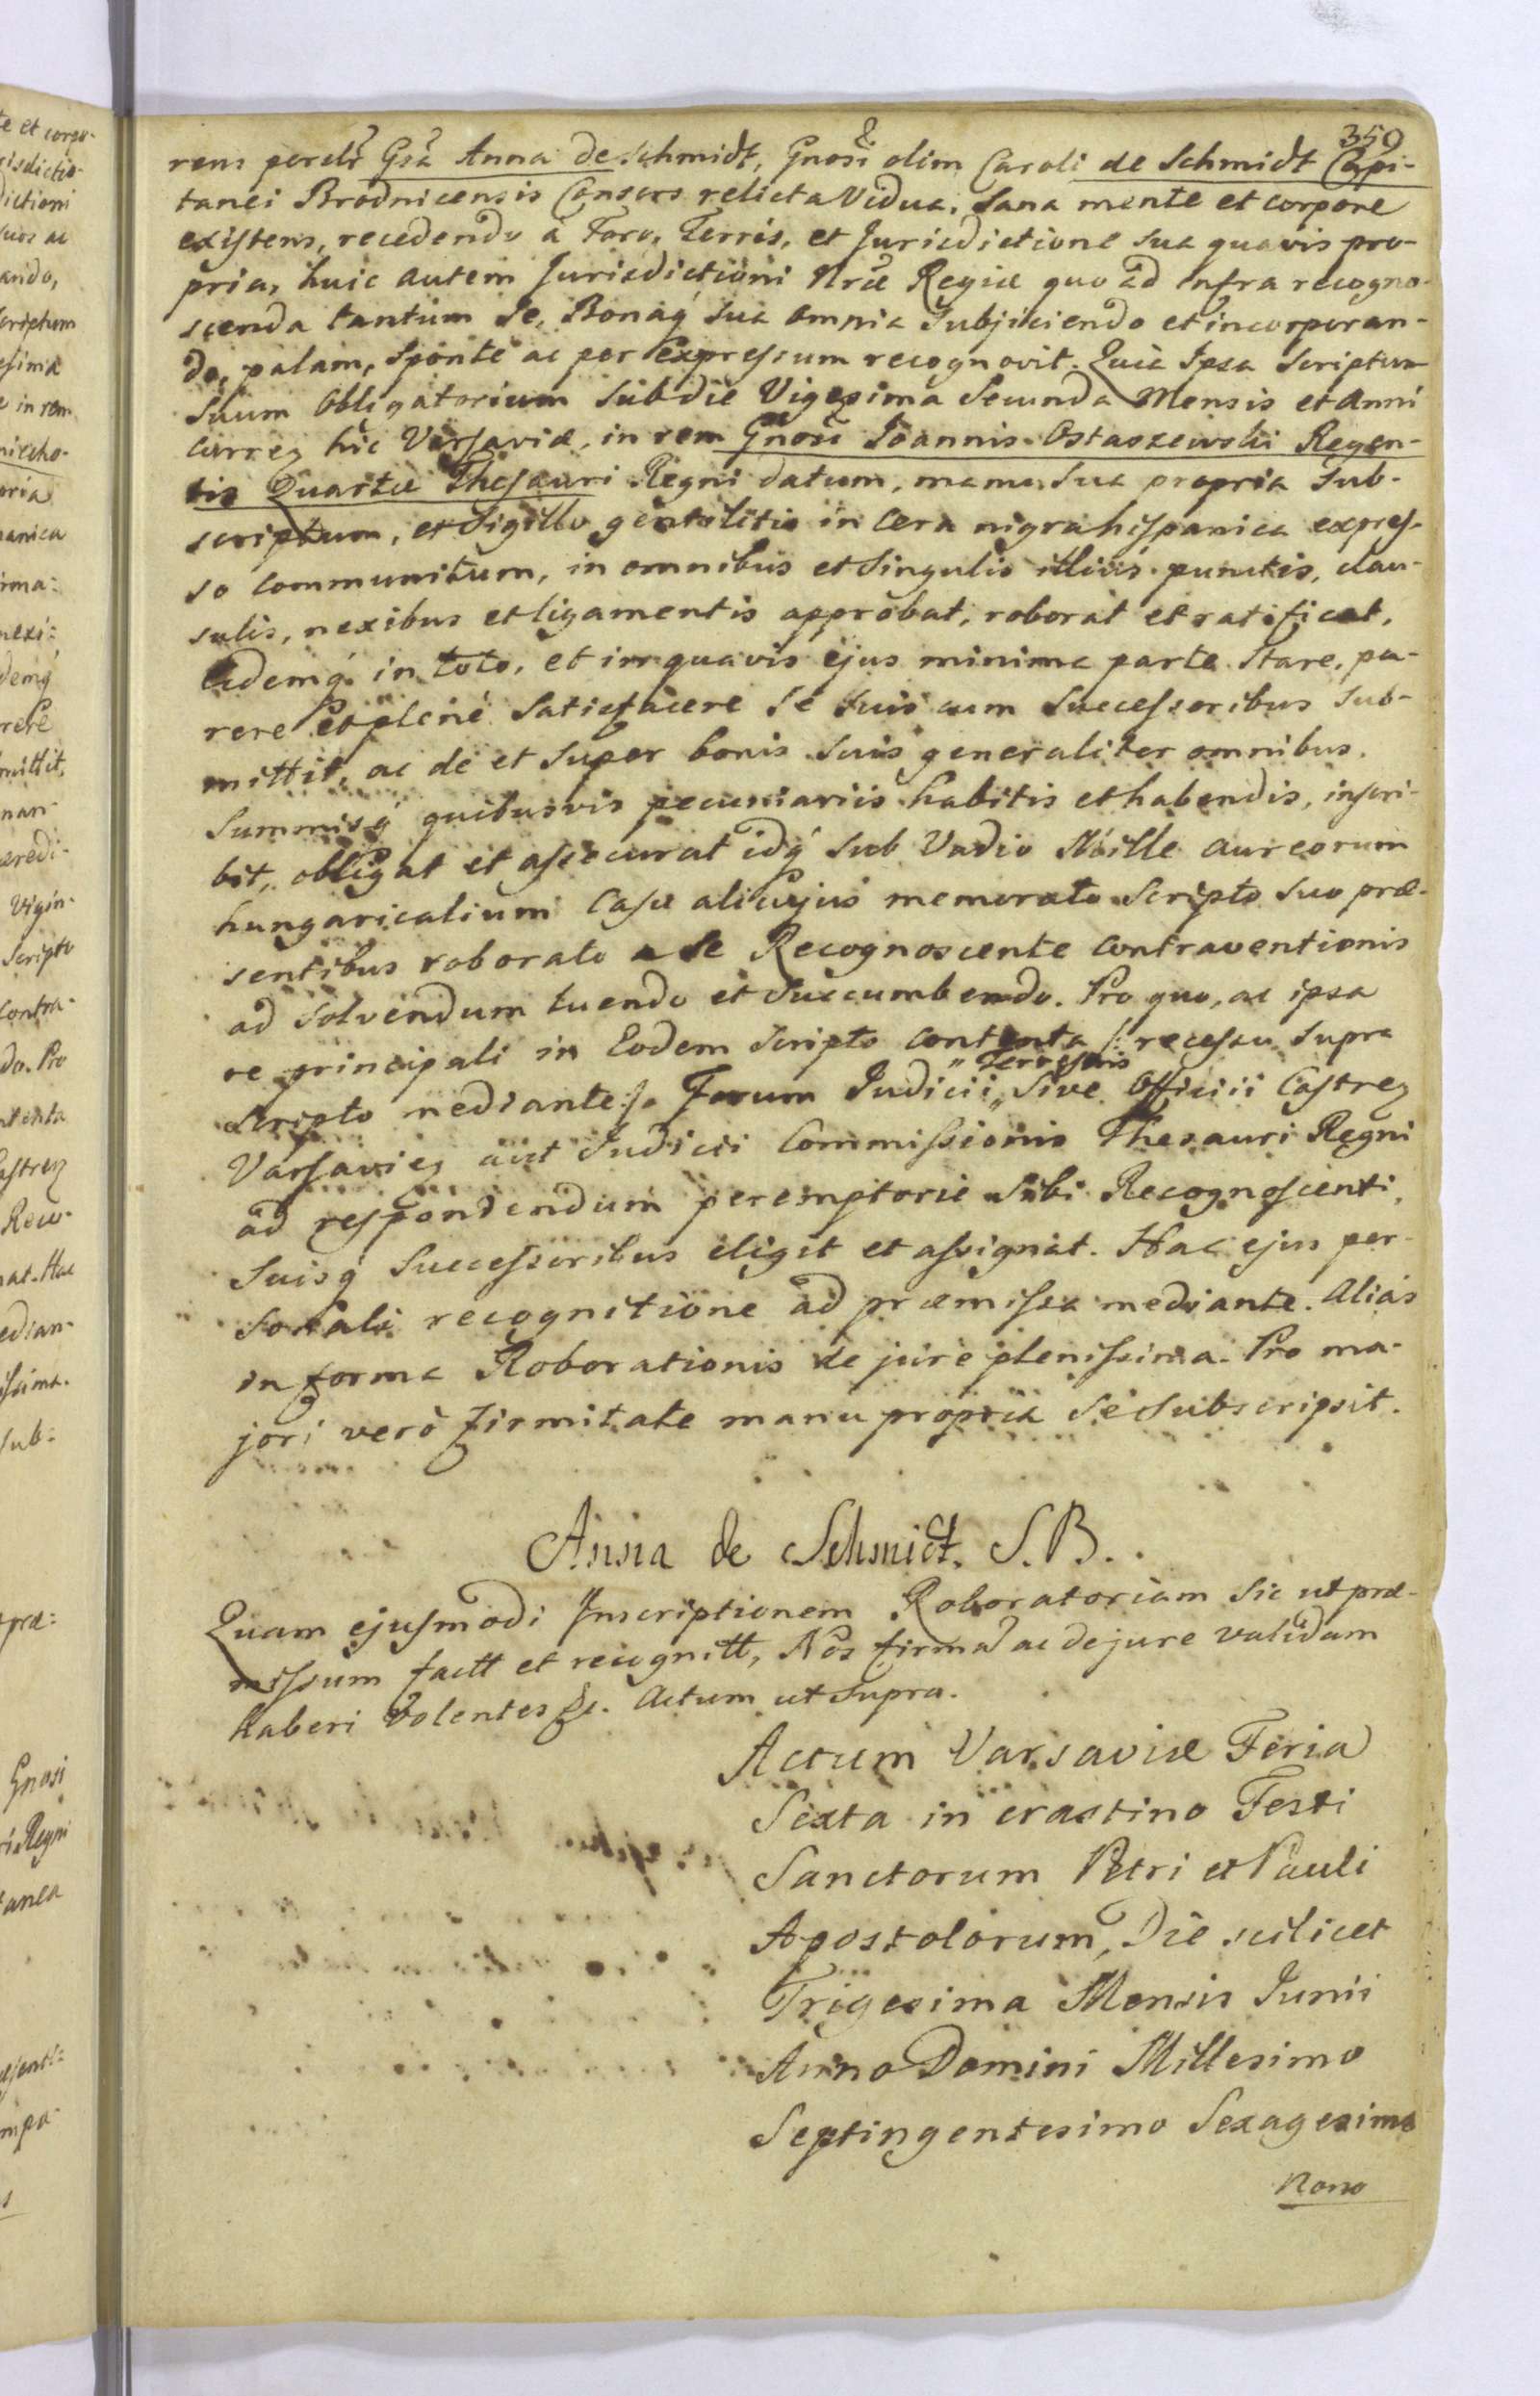 359
rens persolr Gsa Anna de Schmidt, Gnosi olim Caroli de Schmidt Capi-
tanei Brodnicensis Consors relicta Vidua, Sana mente et corpore
existens, recedendo a Foro, Terris, et Jurisdictione sua quavis pro-
pria, huic autem Jurisdictioni Nræ Regiæ quo ad infra recogno-
scenda tantum Se, Bonaq́ sua omnia Subjiciendo et incorporan-
do, palam, Sponte ac per expressum recognovit. Quia Ipsa Scriptum
Suum Obligatorium sub die Vigesima Secunda Mensis et Anni
currez hic Varsaviæ, in rem Gnosi Joannis Ostaszewski Regen-
tis Quartæ Thesauri Regni datum, manu sua propria Sub-
scriptum, et Sigillo gentilitio in cera nigra hispanica expres-
so communitum, in omnibus et Singulis illius punctis, clau-
sulis, nexibus et ligamentis approbat, roborat et ratificat,
Eidemq́ in toto, et in quavis ejus minima parte Stare, pa-
rere et plené Satisfacere Se suis cum Successoribus Sub-
mittit, ac de et Super bonis suis generaliter omnibus,
Summisq́ quibusvis pecuniariis habitis et habendis, inscri-
bit, obligat et assecurat idq́ sub Vadio Mille aureorum
hungaricalium Casu alicujus memorato Scripto suo præ-
sentibus roborato a Se Recognoscente contraventionis
ad solvendum luendo et Succumbendo. Pro quo, ac ipsa
re principali in Eodem Scripto contenta /: recessu supra
scripto mediante :/ Forum Judicii „Terrestris„ Sive Officii Castrez
Varsaviez aut Judicii Commissionis Thesauri Regni
ad respondendum peremptorie Sibi Recognoscenti,
Suisq́ Successoribus eligit et assignat. Hac ejus per-
sonali recognitione ad præmissa mediante. Aliás
in forma Roborationis de jure plenissima. Pro ma-
jori veró firmitate manu propria Se subscripsit.
Anna de Schmidt. S.B.
Quam ejusmodi Inscriptionem Roboratoriam Sic ut præ-
missum factt et recognitt, Nos firmã ac de jure validam
haberi Volentes &c. Actum ut supra.
Actum Varsaviæ Feria
Sexta in crastino Festi
Sanctorum Petri et Pauli
Apostolorum, Die scilicet
Trigesima Mensis Junii
Anno Domini Millesimo
Septingentesimo Sexagesimo
Nono